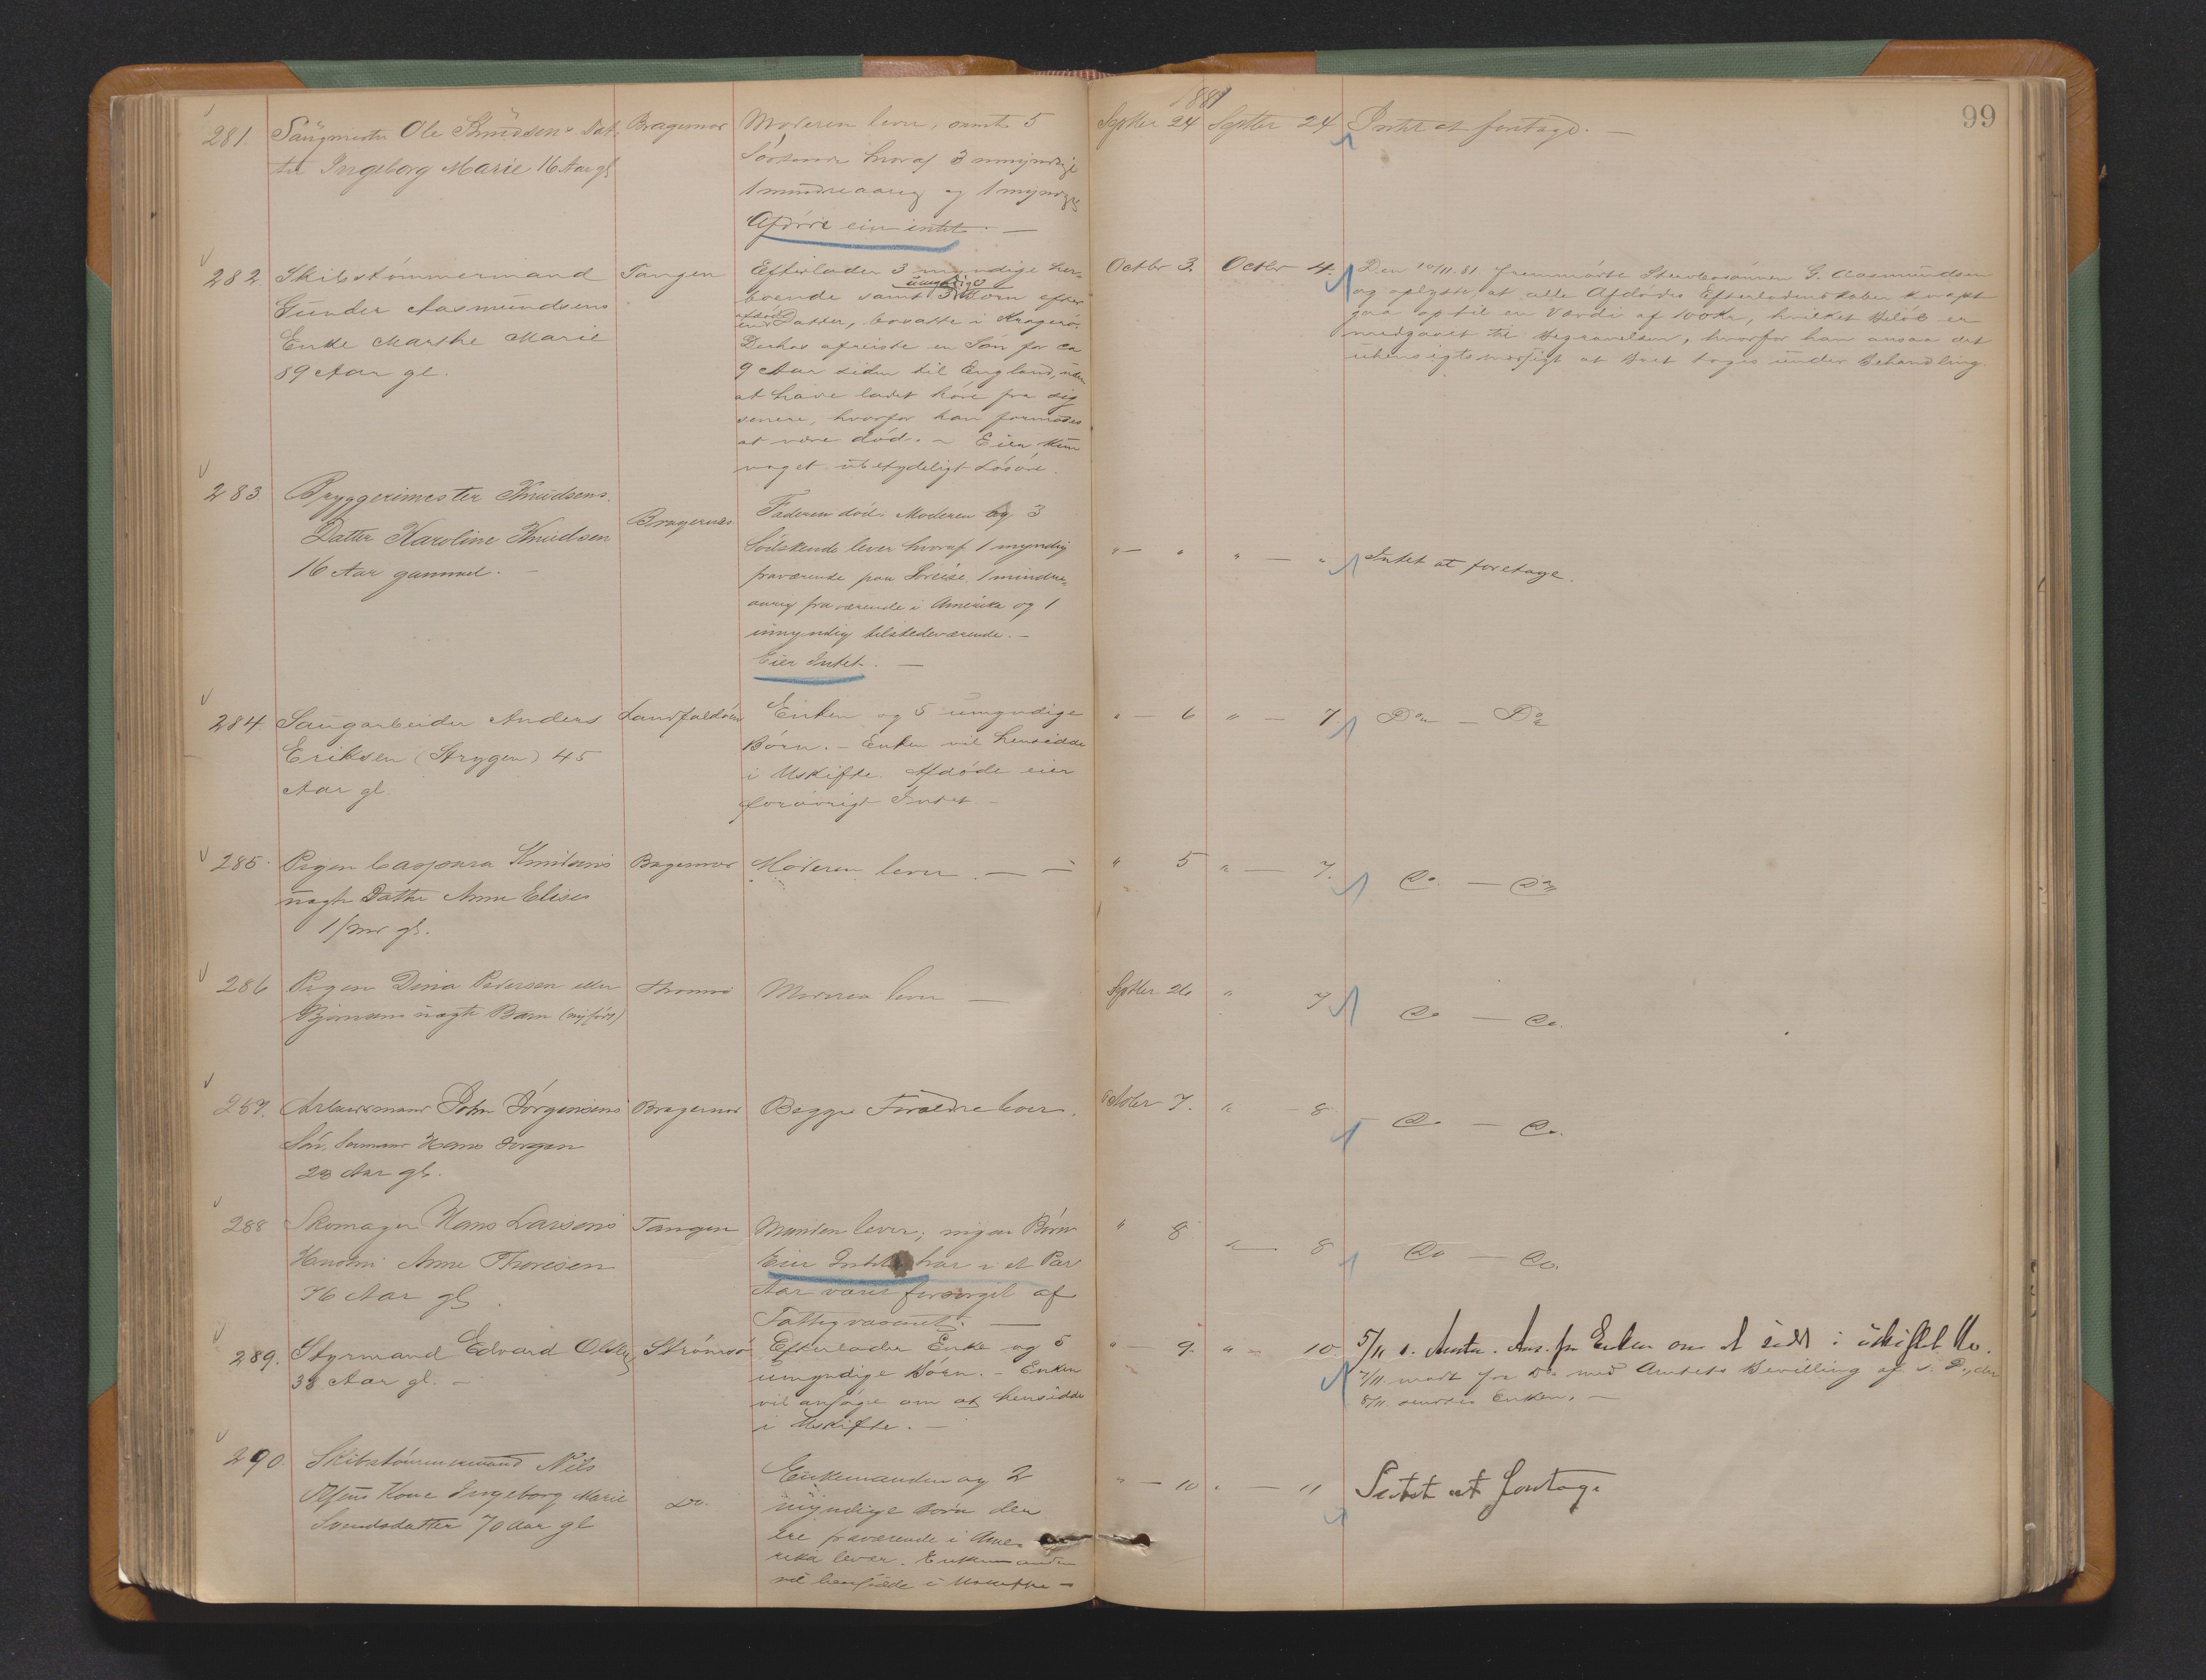 1881
99
281. Saugmester Ole Knudsens Dat-
ter Ingeborg Marie 16 Aar gl.
Bragernæs
Moderen lever, samt 5
Södskende hvoraf 3 umyndige
1 mindreaarig og 1 myndig
Afdöde eier intet. —
Septbr 24
Septbr 24
Intet at foretage. —
282 Skibstömmermand
Gunder Aasmundsens
Enke Marthe Marie
89 Aar gl.
Tangen
Efterlader 3 myndige her-
boende samt 3 umyndige Börn efter
afdöd Datter, bosatte i Kragerö.
Derhos afreiste en Sön for ca
9 Aar siden til England, uden
at have ladet höre fra sig
senere, hvorfor han formodes
at være död. — Eier kun
noget ubetydeligt Lösöre.
Octbr 3.
Octbr 4.
Den 10/11. 81. fremmödte Stervbosönnen G. Aasmundsen
og oplyste, at alle Afdödes Efterladenskaber knapt
gaa op til en Værdi af 100 Kr, hvilket Belöb er
medgaaet til Begravelsen, hvorfor han ansaa det
uhensigtsmæssigt at Boet toges under Behandling.
283 Bryggerimester Knudsens
Datter Karoline Knudsen
16 Aar gammel. —
Bragernæs
Faderen död. Moderen og 3
Södskende lever hvoraf 1 myndig
fraværende paa Söreise, 1 mindre-
aarig fraværende i Amerika og 1
umyndig tilstedeværende. —
Eier Intet. —
" — "
" — "
Intet at foretage.
284 Saugarbeider Anders
Eriksen (Strygen) 45
Aar gl.
Landfaldöen
Enken og 5 umyndige
Börn. — Enken vil hensidde
i Uskifte. Afdöde eier
forövrigt Intet —
" — 6
" — 7.
Do — Do
285. Pigen Caspara Knudsens
uægte Datter Anne Elise
1/ Mr gl.
Bragernæs
Moderen lever. — —
" 5
" — 7.
Do. — Do
286 Pigen Dina Pedersen eller
Björnsens uægte Barn (nyfödt)
Moderen lever —
Septbr 26
" 7
Do — Do.
287. Arbeidsmand John Jörgensens
Sön, Sömand Hans Jörgen
23 Aar gl.
Bragernæs
Begge Forældre lever.
October 7.
" — 8
Do — Do.
288 Skomager Hans Larsens
Hustru Anne Thoresen
76 Aar gl.
Tangen
Manden lever; ingen Börn
Eier Intet har i et Par
Aar været forsörget af
Fattigvæsenet. —
" 8
" — 8
Do — Do.
289. Styrmand Edvard Olsen
38 Aar gl. —
Strömsö
Efterlader Enke og 5
umyndige Börn. — Enken
vil ansöge om at hensidde
i Uskifte. —
" — 9.
" — 10
5/11 s. Amtm. Ans. fra Enken om at sidde i uskiftet Bo.
7/11. modt fra Do med Amtets Bevilling af s. D., der
8/11. sendtes Enken. —
290. Skibstömmermand Nils
Kone Ingeborg Marie
Svendsdatter 70 Aar gl
Do.
Enkemanden og 2
myndige Börn der
ere fraværende i Ame-
rika lever. Enkemanden
vil hensidde i Uskifte —
" — 10
" — 11
Intet at foretage